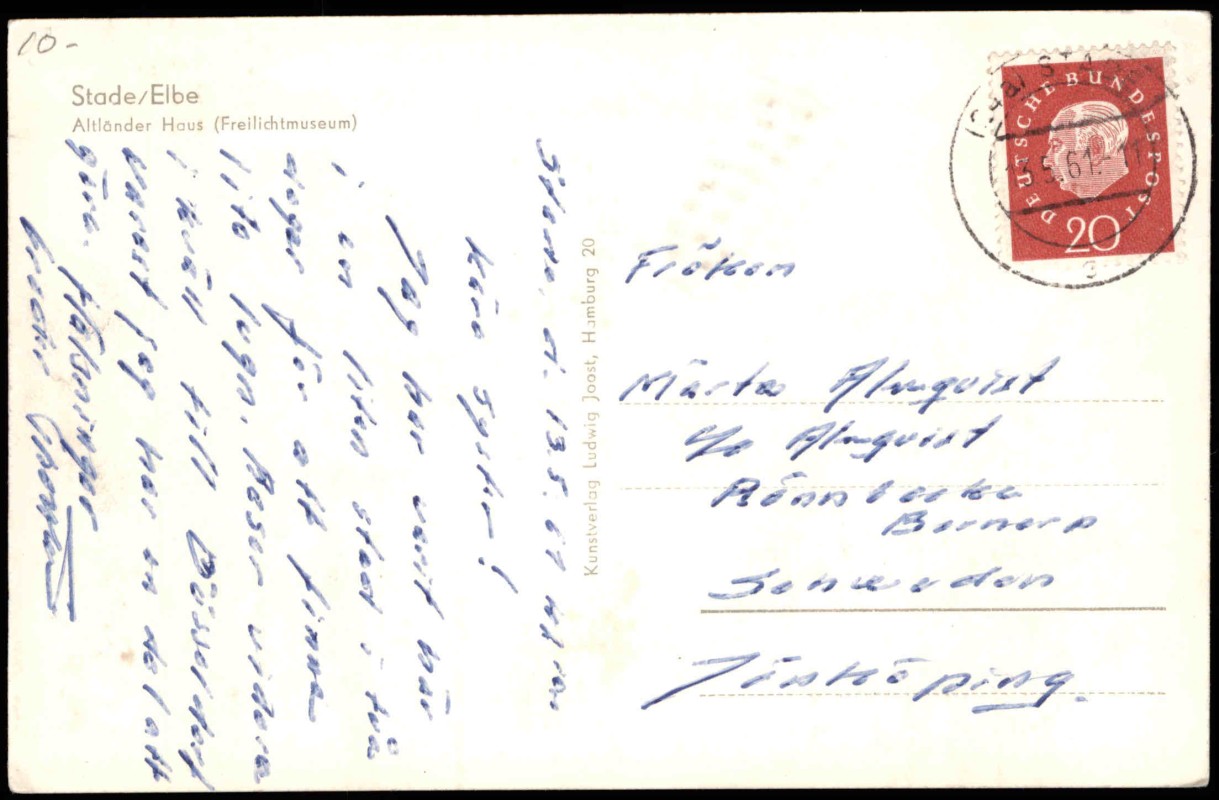 10-
Stade/Elbe
Altländer Haus (Freilichtmuseum)
Stade, d. 13.5.61
Kära syster!
Jag har varit här
i en liten stad i två
dagar för att finna
lite lugn. Reser vidare
i kväll till Düsseldorf
varest jag har en del att
göra.
Hälsningar
Kunstverlag Ludwig Joost, Hamburg 20
DEUTSCHE BUNDESPOST
20
(24a) STADE
13.5.61.-11
c
Fröken
Märta Almquist
c/o Almquist
Rönnbacka
Barnarp
Schweden
Jönköping.